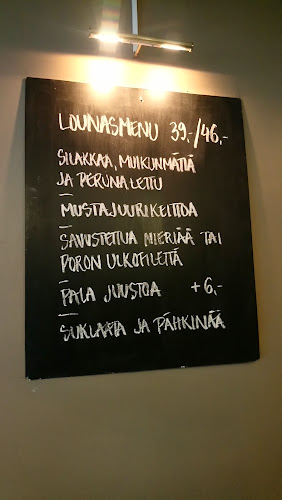 LOUNASMENU 39.-/46,-
SILAKKAA, MUIKUNMÄTIÄ
JA PERUNALETTU
MUSTAJUURIKEITTOA
SAVUSTETTUA NIERIÄÄ TAI
PORON ULKOFILETTÄ
PALA JUUSTOA +6,-
SUKLAATA JA PÄHKINÄÄ